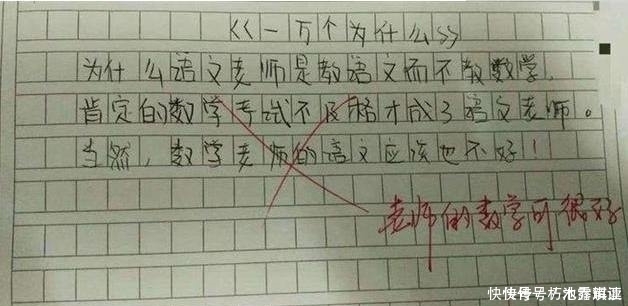 《一万个为什么》
为什么语文老师是教语文而不教数学,
肯定的数学考试不及格才成了语文老师。
当然,数学老师的语文应该也不好!
老师的数学可很好
快传号